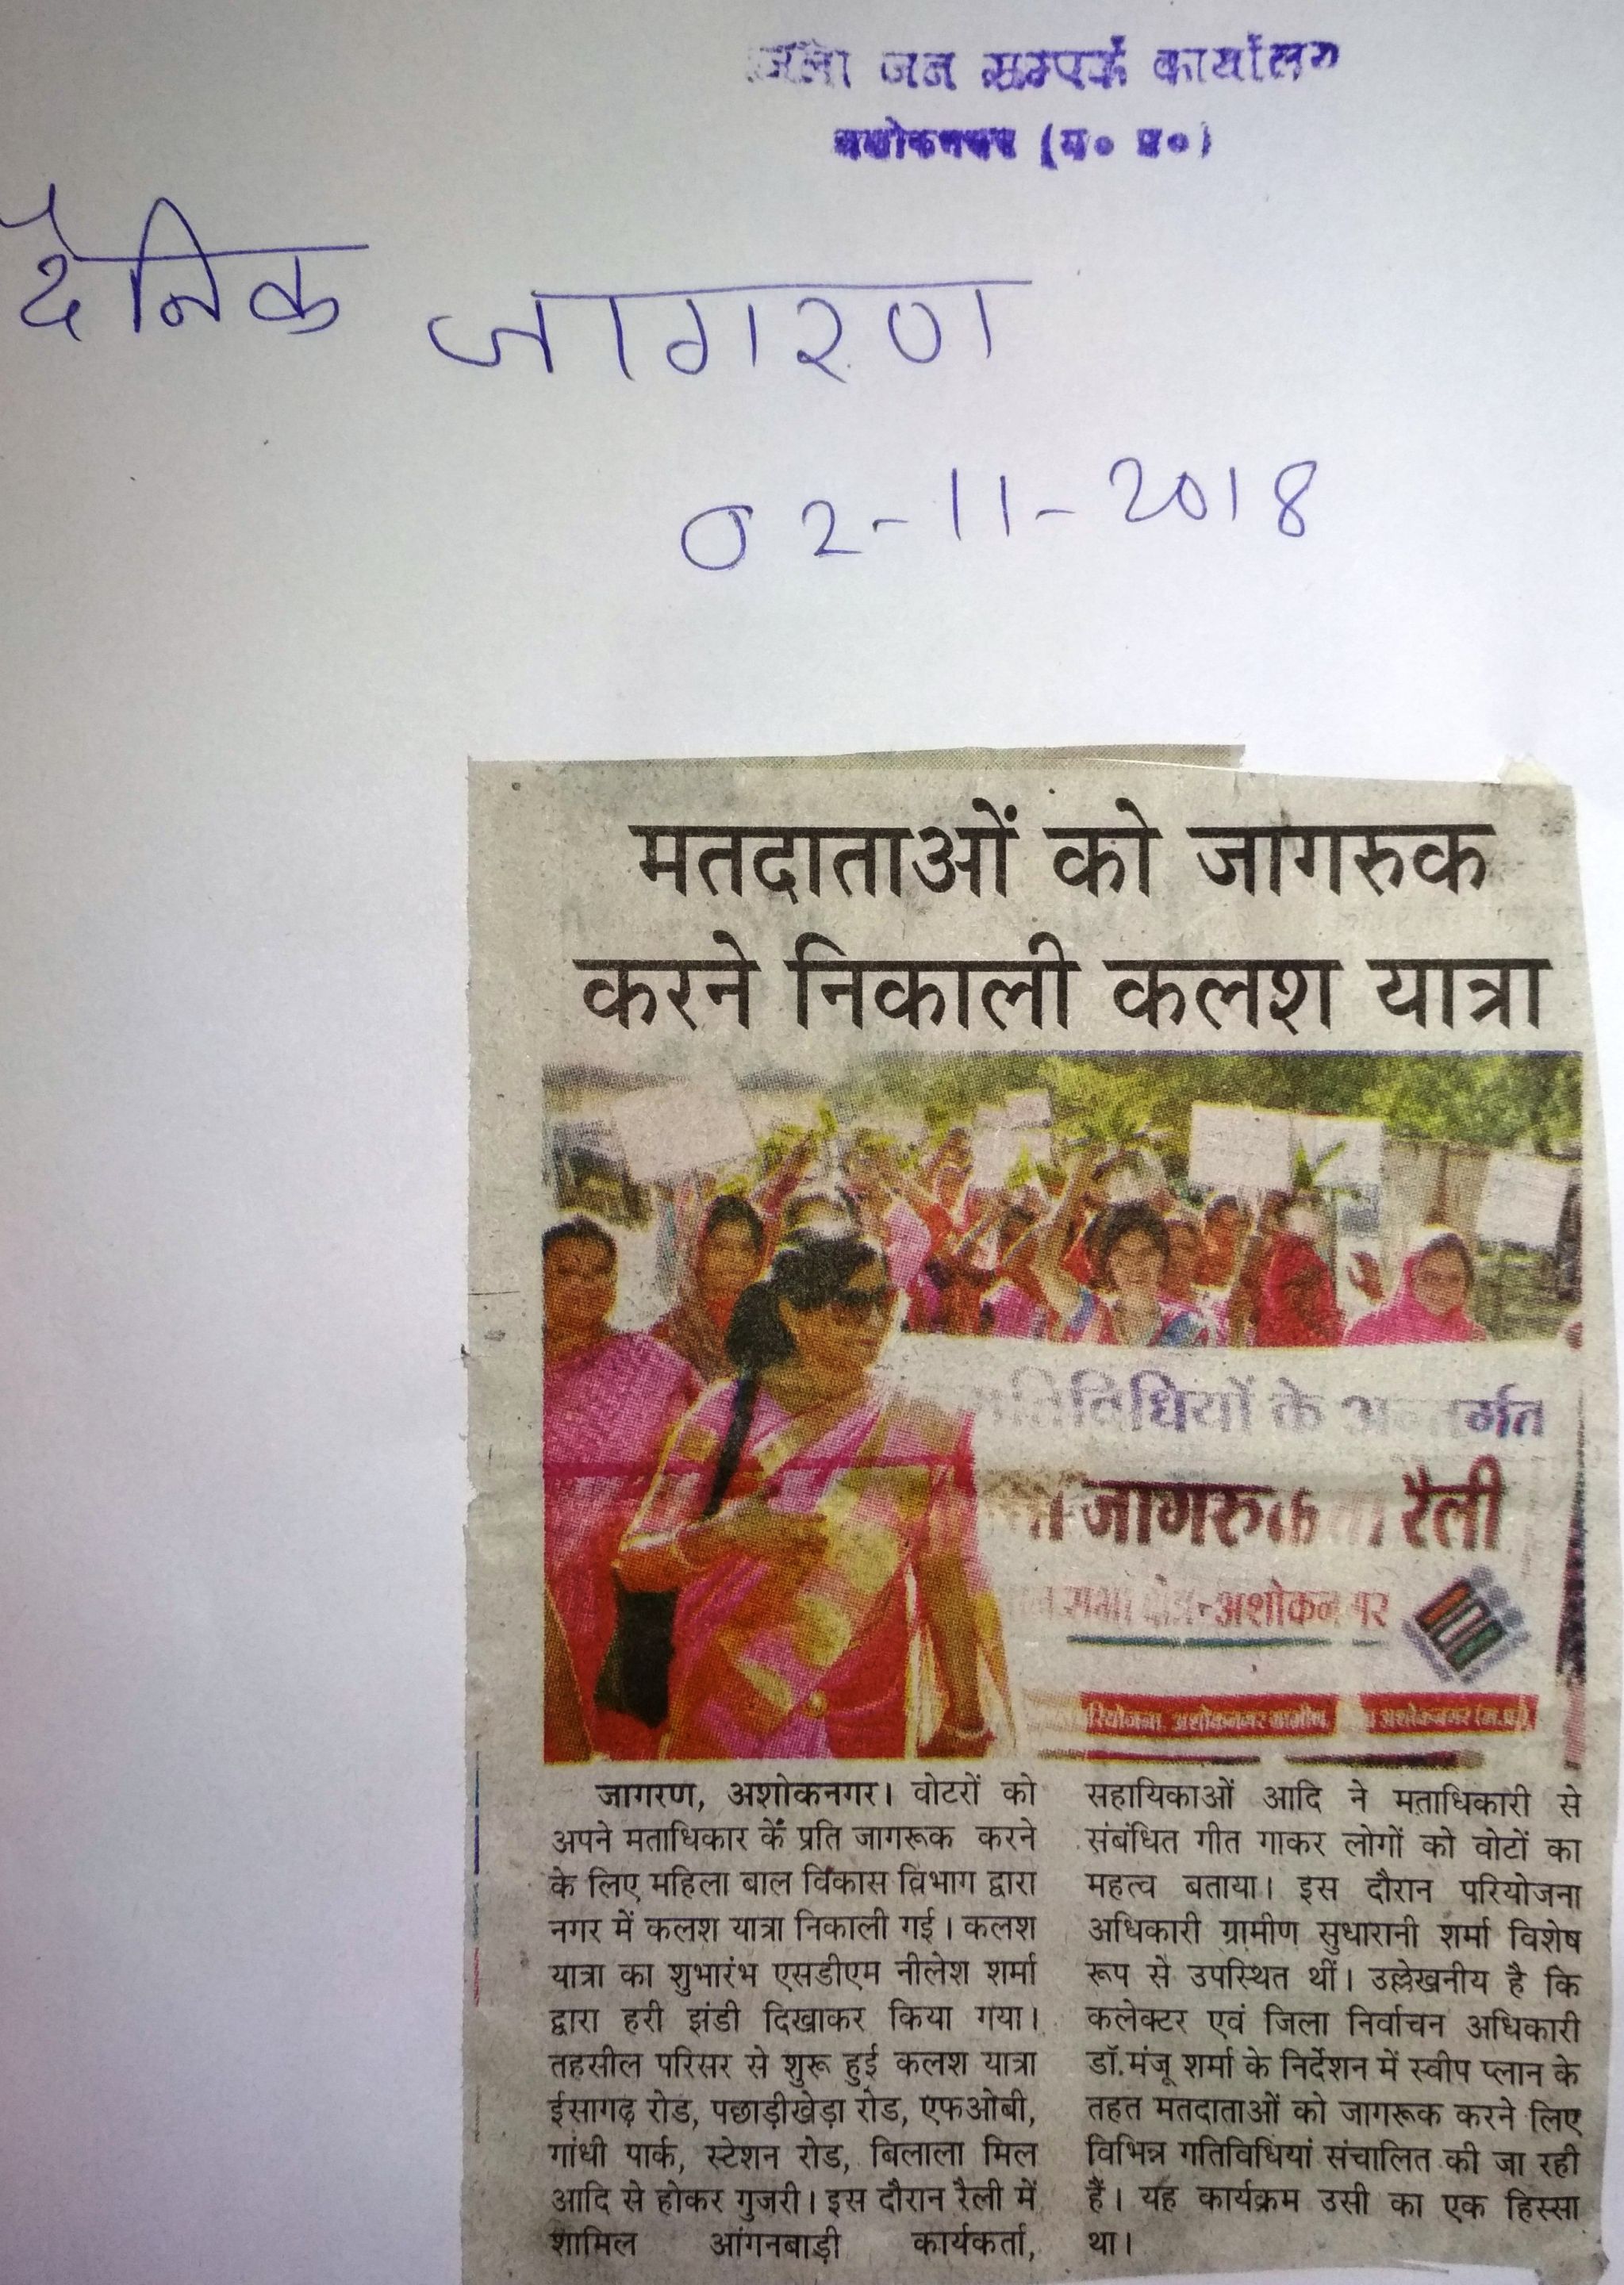 जिला जन सम्पर्क कार्यालय
अशोकनगर (म० प्र०)
दैनिक जागरण
02-11-2018
मतदाताओं को जागरुक
करने निकाली कलश यात्रा
गतिविधियों के अन्तर्गत
जागरुकता रैली
अशोकनगर
परियोजना, अशोकनगर ग्रामीण, अशोकनगर (म.प्र.)
जागरण, अशोकनगर। वोटरों को
अपने मताधिकार के प्रति जागरूक करने
के लिए महिला बाल विकास विभाग द्वारा
नगर में कलश यात्रा निकाली गई। कलश
यात्रा का शुभारंभ एसडीएम नीलेश शर्मा
द्वारा हरी झंडी दिखाकर किया गया।
तहसील परिसर से शुरू हुई कलश यात्रा
ईसागढ़ रोड, पछाड़ीखेड़ा रोड, एफओबी,
गांधी पार्क, स्टेशन रोड, बिलाला मिल
आदि से होकर गुजरी। इस दौरान रैली में
शामिल आंगनबाड़ी कार्यकर्ता,
सहायिकाओं आदि ने मताधिकारी से
संबंधित गीत गाकर लोगों को वोटों का
महत्व बताया। इस दौरान परियोजना
अधिकारी ग्रामीण सुधारानी शर्मा विशेष
रूप से उपस्थित थीं। उल्लेखनीय है कि
कलेक्टर एवं जिला निर्वाचन अधिकारी
डॉ.मंजू शर्मा के निर्देशन में स्वीप प्लान के
तहत मतदाताओं को जागरूक करने लिए
विभिन्न गतिविधियां संचालित की जा रही
हैं। यह कार्यक्रम उसी का एक हिस्सा
था।